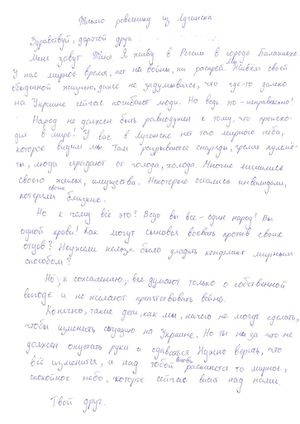 Письмо ровеснику из Луганска
Здравствуй, дорогой друг.
Меня зовут Таня. Я живу в России в городе Балашихе.
У нас мирное время, нет ни войны, ни распрей. Живём своей
обыденной жизнью, даже не задумываясь, что где-то далеко
на Украине сейчас погибают люди. Но ведь это - неправильно!
Народ не должен быть равнодушен к тому, что происхо-
дит в мире! У вас в Луганске не то мирное небо,
которое видим мы. Там разрываются снаряды, гремят пулемё-
ты, люди страдают от голода, холода. Многие лишились
своего жилья, имущества. Некоторые остались инвалидами,
потеряли своих близких.
Но к чему всё это? Ведь вы все - один народ! Вы
одной крови! Как могут сыновья воевать против своих
отцов? Неужели нельзя было уладить конфликт мирным
способом?
Но, к сожалению, все думают только о собственной
выгоде и не желают препятствовать войне.
Конечно, такие дети как мы, ничего не могут сделать,
чтобы изменить ситуацию на Украине. Но ты ни за что не
должен опускать руки и сдаваться. Нужно верить, что
всё изменится, и над тобой вновь раскинется то мирное,
спокойное небо, которое сейчас висит над нами.
Твой друг.